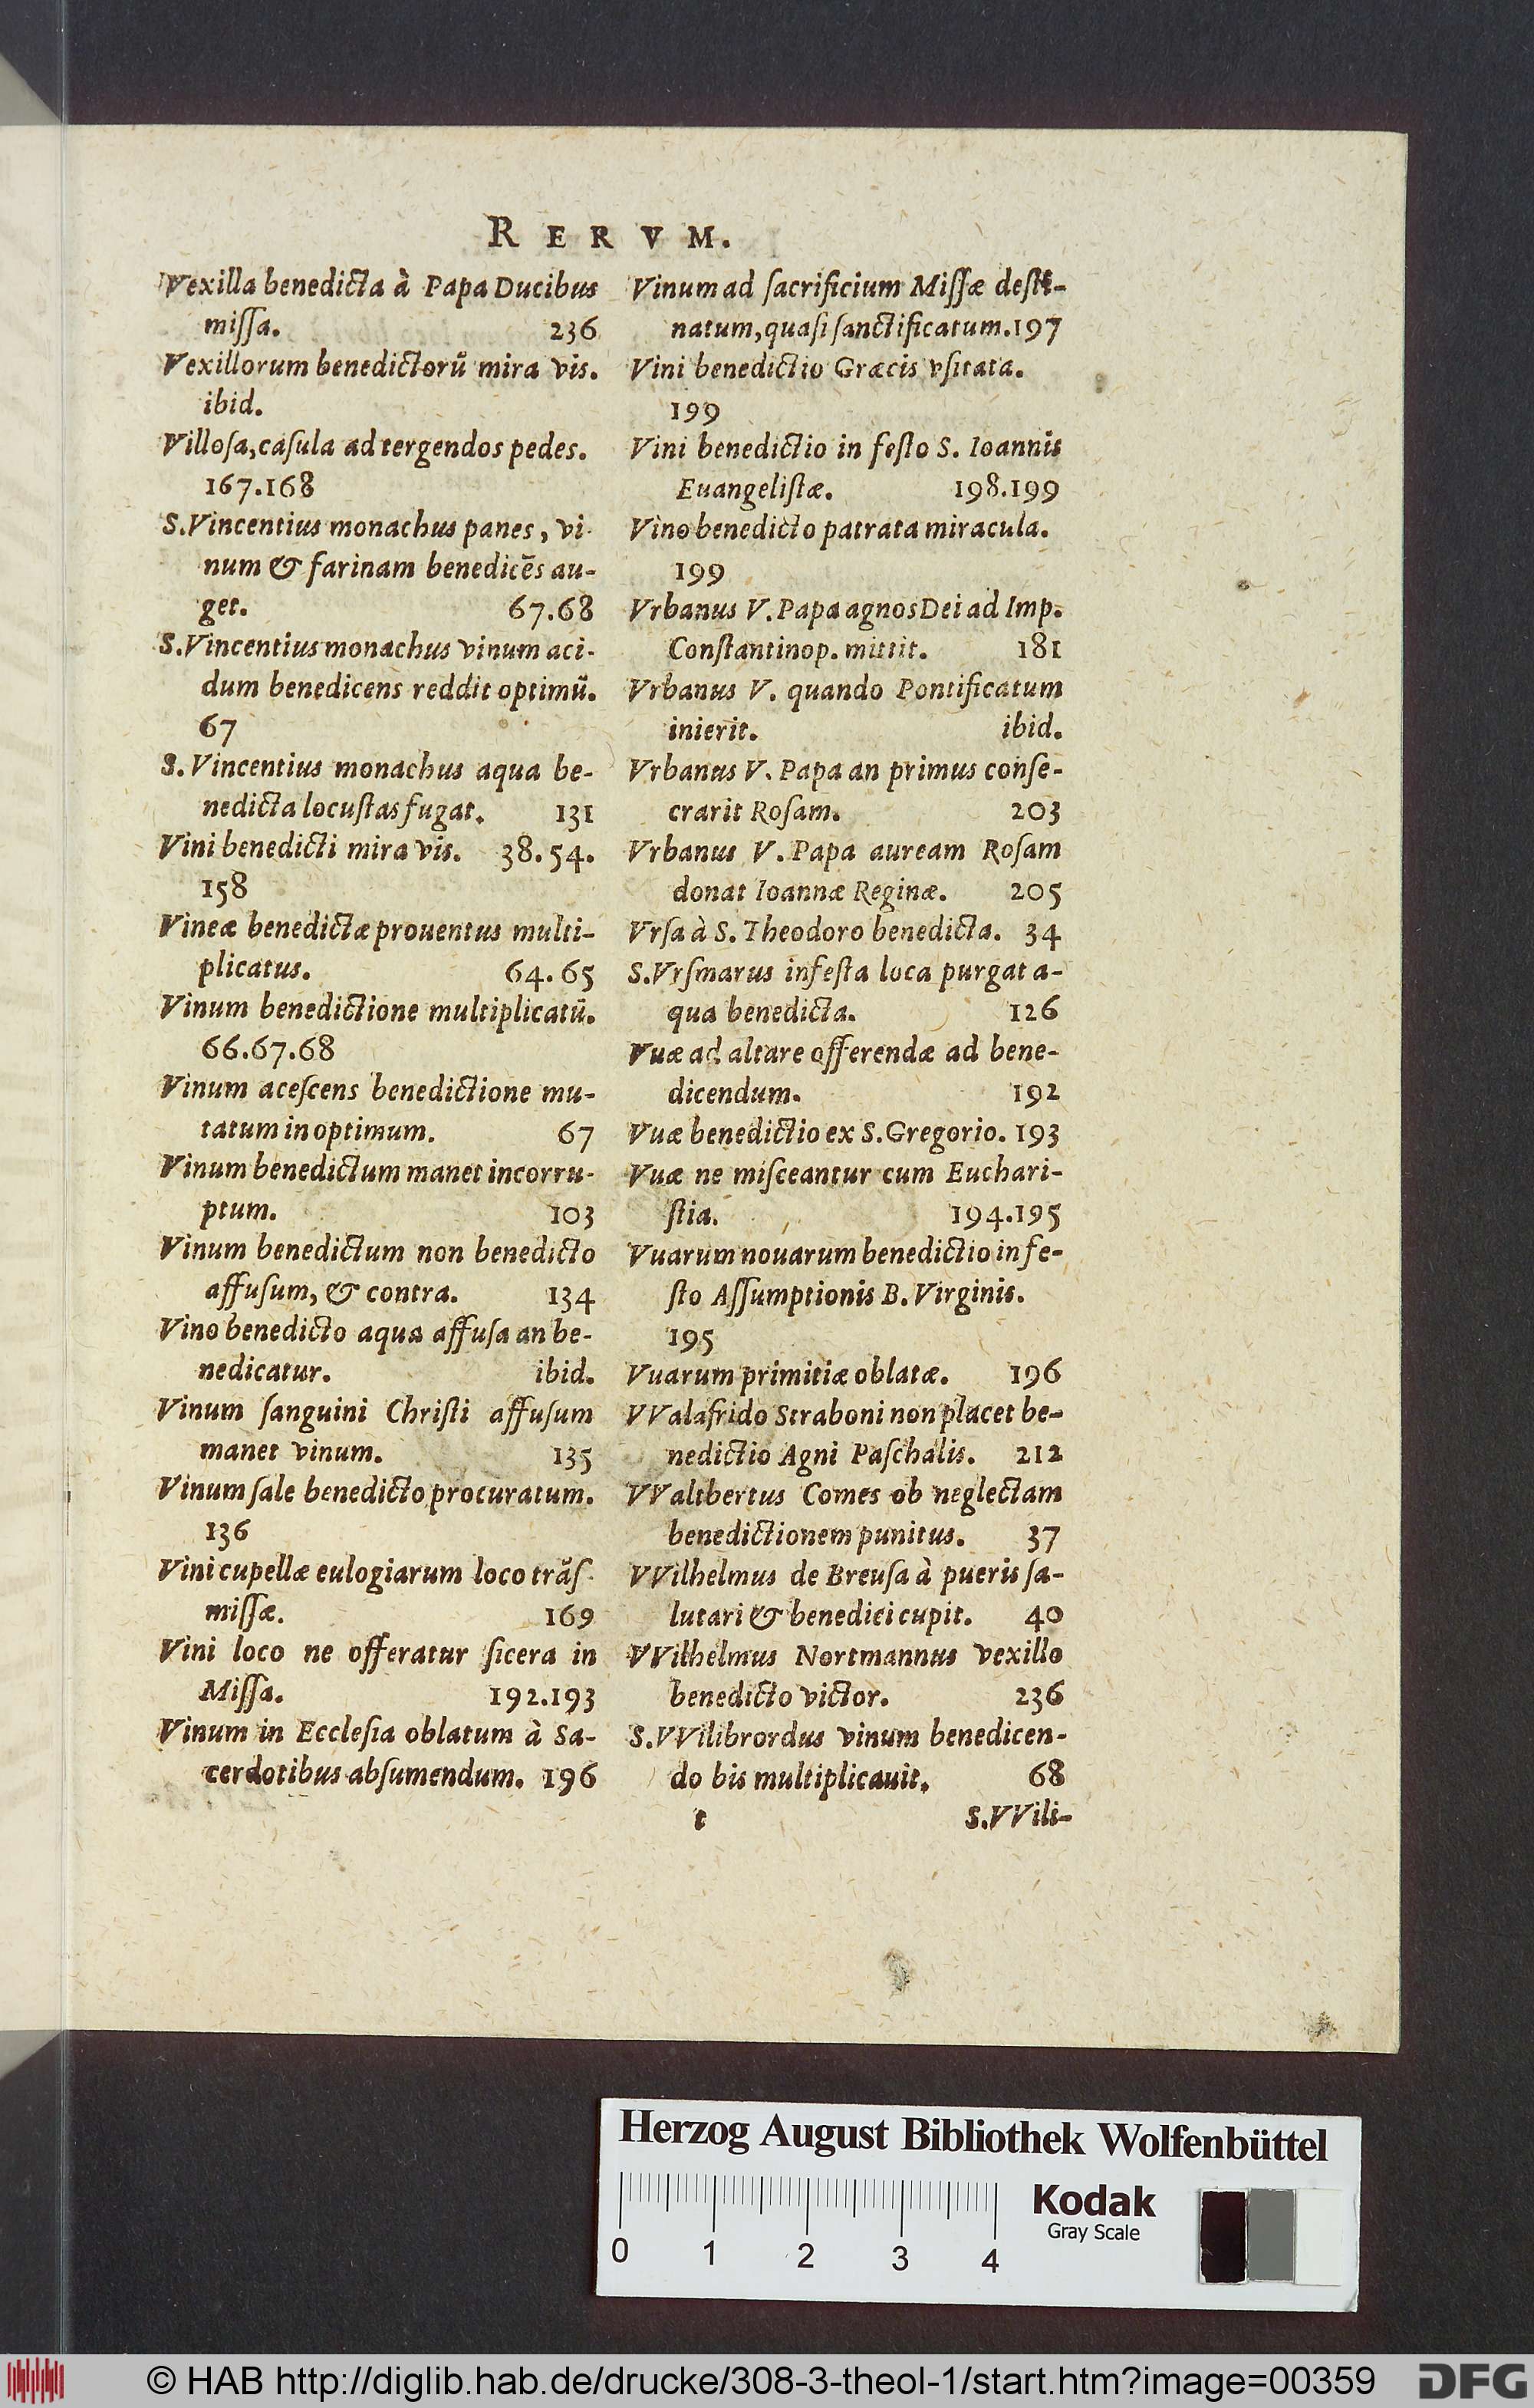 RERVM.
Vexilla benedicta à Papa Ducibus
miſſa. 236
Vexillorum benedictorū mira vis.
ibid.
Villoſa, caſula ad tergendos pedes.
167.168
S. Vincentius monachus panes, vi-
num & farinam benedicēs au-
get. 67.68
S. Vincentius monachus vinum aci-
dum benedicens reddit optimū.
67
S. Vincentius monachus aqua be-
nedicta locuſtas fugat. 131
Vini benedicti mira vis. 38.54.
158
Vineæ benedictæ prouentus multi-
plicatus. 64.65
Vinum benedictione multiplicatū.
66.67.68
Vinum aceſcens benedictione mu-
tatum in optimum. 67
Vinum benedictum manet incorru-
ptum. 103
Vinum benedictum non benedicto
affuſum, & contra. 134
Vino benedicto aqua affuſa an be-
nedicatur. ibid.
Vinum ſanguini Chriſti affuſum
manet vinum. 135
Vinum ſale benedicto procuratum.
136
Vini cupellæ eulogiarum loco trāſ-
miſſæ. 169
Vini loco ne offeratur ſicera in
Miſſa. 192.193
Vinum in Eccleſia oblatum à Sa-
cerdotibus abſumendum. 196
Vinum ad ſacrificium Miſſæ deſti-
natum, quaſi ſanctificatum. 197
Vini benedictio Græcis vſitata.
199
Vini benedictio in feſto S. Ioannis
Euangeliſtæ. 198.199
Vino benedicto patrata miracula.
199
Vrbanus V. Papa agnos Dei ad Imp.
Conſtantinop. mittit. 181
Vrbanus V. quando Pontificatum
inierit. ibid.
Vrbanus V. Papa an primus conſe-
crarit Roſam. 203
Vrbanus V. Papa auream Roſam
donat Ioannæ Reginæ. 205
Vrſa à S. Theodoro benedicta. 34
S. Vrſmarus infeſta loca purgat a-
qua benedicta. 126
Vuæ ad altare offerendæ ad bene-
dicendum. 192
Vuæ benedictio ex S. Gregorio. 193
Vuæ ne miſceantur cum Euchari-
ſtia. 194.195
Vuarum nouarum benedictio in fe-
ſto Aſſumptionis B. Virginis.
195
Vuarum primitiæ oblatæ. 196
VValafrido Straboni non placet be-
nedictio Agni Paſchalis. 212
VValtbertus Comes ob neglectam
benedictionem punitus. 37
VVilhelmus de Breuſa à pueris ſa-
lutari & benedici cupit. 40
VVilhelmus Nortmannus vexillo
benedicto victor. 236
S. VVilibrordus vinum benedicen-
do bis multiplicauit. 68
t S. VVili-
Herzog August Bibliothek Wolfenbüttel
Kodak
Gray Scale
0 1 2 3 4
© HAB http://diglib.hab.de/drucke/308-3-theol-1/start.htm?image=00359
DFG